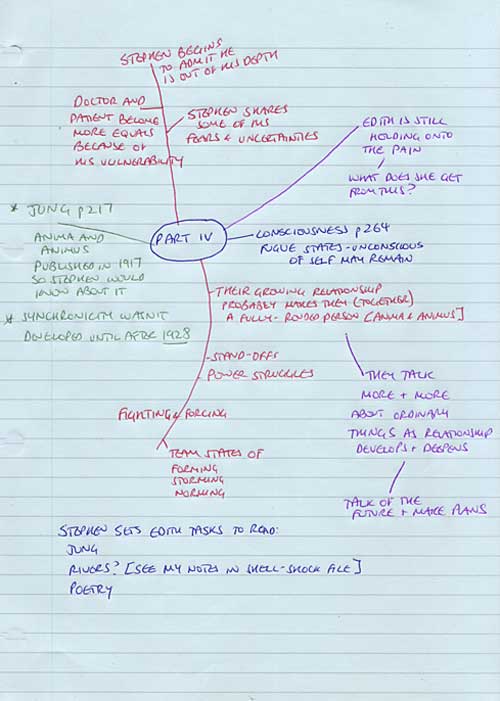 STEPHEN BEGINS
TO ADMIT HE
IS OUT OF HIS DEPTH
DOCTOR AND
PATIENT BECOME
MORE EQUALS
BECAUSE OF
HIS VULNERABILITY
STEPHEN SHARES
SOME OF HIS
FEARS + UNCERTAINTIES
EDITH IS STILL
HOLDING ONTO
THE PAIN
WHAT DOES SHE GET
FROM THIS?
* JUNG p217
ANIMA AND
ANIMUS
PUBLISHED IN 1917
SO STEPHEN WOULD
KNOW ABOUT IT
* SYNCHRONICITY WASN'T
DEVELOPED UNTIL AFTER 1928
PART IV
CONSCIOUSNESS p264
FUGUE STATES - UNCONSCIOUS
OF SELF MAY REMAIN
THEIR GROWING RELATIONSHIP
PROBABLY MAKES THEM (TOGETHER)
A FULLY-RONDED PERSON [ANIMA + ANIMUS]
STAND-OFFS
POWER STRUGGLES
FIGHTING + FORCING
TEAM STATES OF
FORMING
STORMING
NORMING
THEY TALK
MORE + MORE
ABOUT ORDINARY
THINGS AS RELATIONSHIP
DEVELOPS + DEEPENS
TALK OF THE
FUTURE + MAKE PLANS
STEPHEN SETS EDITH TASKS TO READ:
JUNG
RIVERS? [SEE MY NOTES IN SHELL-SHOCK FILE]
POETRY